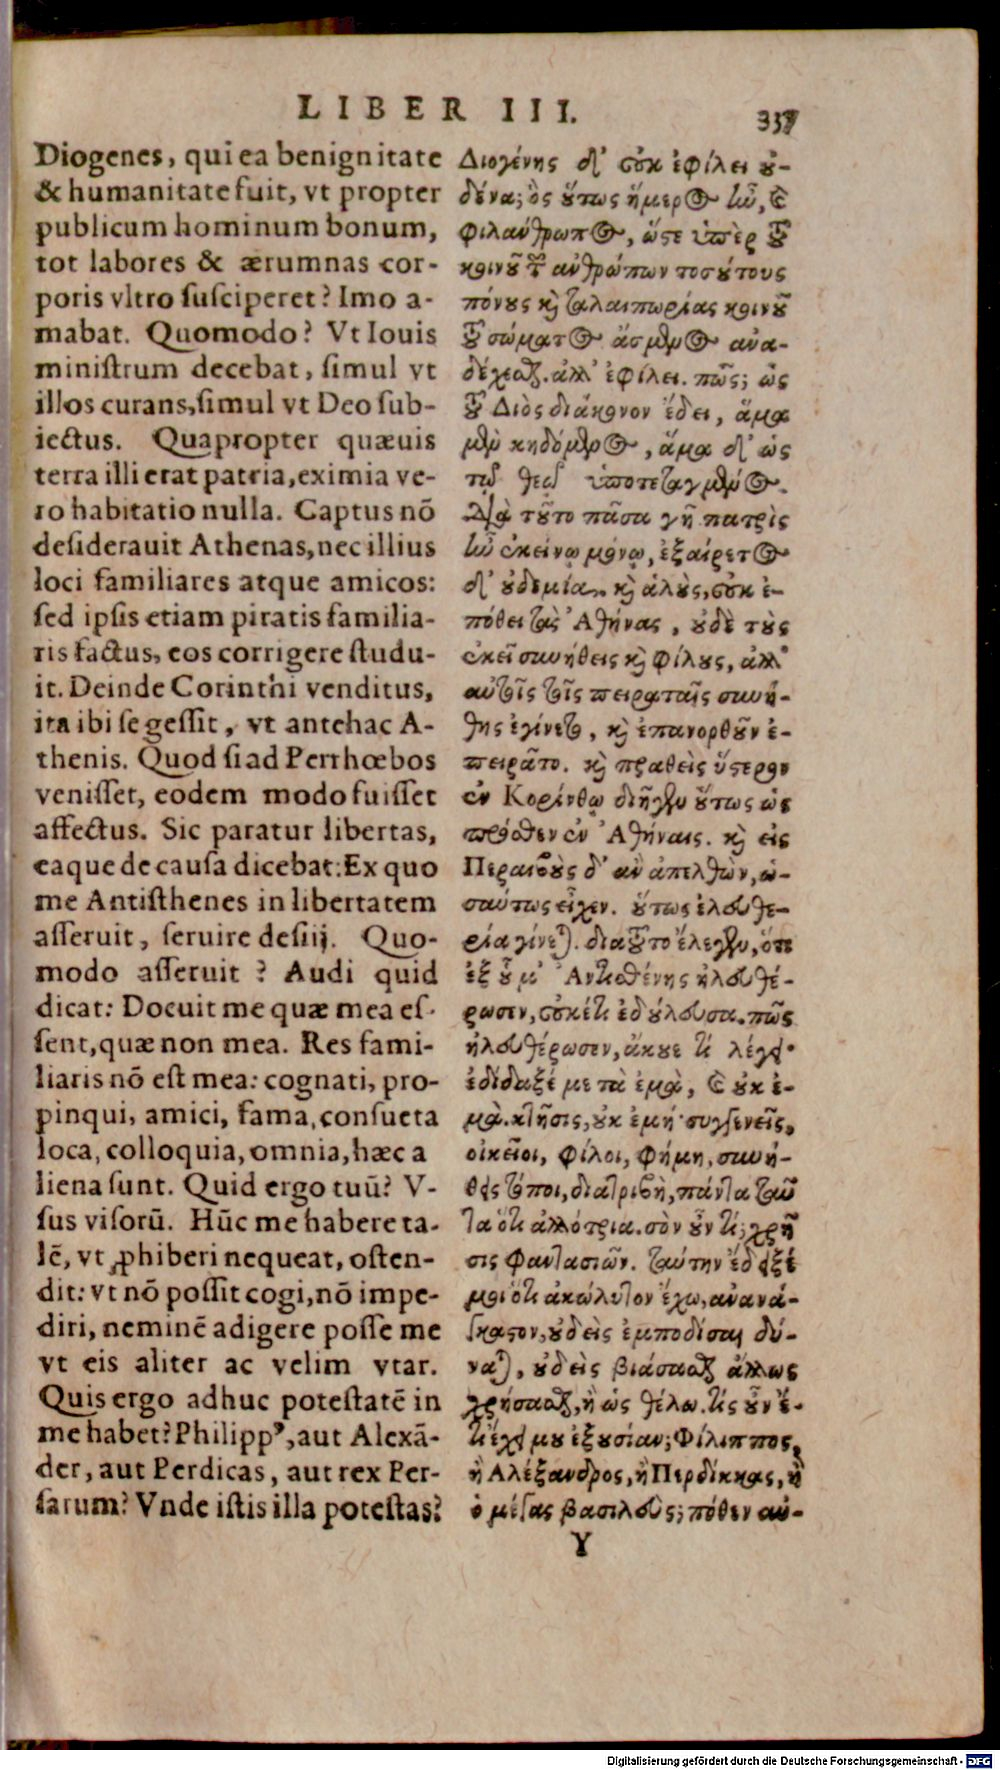 LIBER III.
337
Diogenes, qui ea benignitate
& humanitate fuit, vt propter
publicum hominum bonum,
tot labores & ærumnas cor-
poris vltro susciperet? Imo a-
mabat. Quomodo? Vt Iouis
ministrum decebat, simul vt
illos curans, simul vt Deo sub-
iectus. Quapropter quæuis
terra illi erat patria, eximia ve-
ro habitatio nulla. Captus nõ
desiderauit Athenas, nec illius
loci familiares atque amicos:
sed ipsis etiam piratis familia-
ris factus, eos corrigere studu-
it. Deinde Corinthi venditus,
ita ibi se gessit, vt antehac A-
thenis. Quod si ad Perrhœbos
venisset, eodem modo fuisset
affectus. Sic paratur libertas,
eaque de causa dicebat: Ex quo
me Antisthenes in libertatem
asseruit, seruire desiij. Quo-
modo asseruit? Audi quid
dicat: Docuit me quæ mea es-
sent, quæ non mea. Res fami-
liaris nõ est mea: cognati, pro-
pinqui, amici, fama, consueta
loca, colloquia, omnia, hæc a
liena sunt. Quid ergo tuũ? V-
sus visorũ. Hũc me habere ta-
lẽ, vt ꝓhiberi nequeat, osten-
dit: vt nõ possit cogi, nõ impe-
diri, neminẽ adigere posse me
vt eis aliter ac velim vtar.
Quis ergo adhuc potestatẽ in
me habet? Philippꝰ, aut Alexã-
der, aut Perdicas, aut rex Per-
sarum? Vnde istis illa potestas?
Διογένης δ' οὐκ ἐφίλει οὐ-
δένα; ὃς οὕτως ἥμερος ἦν, καὶ
φιλάνθρωπος, ὥστε ὑπὲρ τοῦ
κοινοῦ τῶν ἀνθρώπων τοσούτους
πόνους καὶ ταλαιπωρίας κοινοῦ
τοῦ σώματος ἄσμενος ἀνα-
δέχεσθαι. ἀλλ' ἐφίλει. πῶς; ὡς
τοῦ Διὸς διάκονον ἔδει, ἅμα
μὲν κηδόμενος, ἅμα δ' ὡς
τῷ θεῷ ὑποτεταγμένος.
Διὰ τοῦτο πᾶσα γῆ πατρὶς
ἦν ἐκείνῳ μόνῳ, ἐξαίρετος
δ' οὐδεμία. καὶ ἁλοὺς, οὐκ ἐ-
πόθει τὰς Ἀθήνας, οὐδὲ τοὺς
ἐκεῖ συνήθεις καὶ φίλους, ἀλλ'
αὐτοῖς τοῖς πειραταῖς συνή-
θης ἐγίνετο, καὶ ἐπανορθοῦν ἐ-
πειρᾶτο. καὶ πραθεὶς ὕστερον
ἐν Κορίνθῳ διῆγεν οὕτως ὡς
πρόσθεν ἐν Ἀθήναις. καὶ εἰς
Περαιβοὺς δ' ἂν ἀπελθὼν, ὡ-
σαύτως εἶχεν. οὕτως ἐλευθε-
ρία γίνεται. διὰ τοῦτο ἔλεγεν, ὅτι
ἐξ οὗ μ' Ἀντισθένης ἠλευθέ-
ρωσεν, οὐκέτι ἐδούλευσα. πῶς
ἠλευθέρωσεν, ἄκουε τί λέγει·
ἐδίδαξέ με τὰ ἐμὰ, καὶ οὐκ ἐ-
μὰ. κτῆσις, οὐκ ἐμή· συγγενεῖς,
οἰκεῖοι, φίλοι, φήμη, συνή-
θεις τόποι, διατριβὴ, πάντα ταῦ
τα ὅτι ἀλλότρια. σὸν οὖν τί; χρῆ
σις φαντασιῶν. ταύτην ἔδειξέ
μοι ὅτι ἀκώλυτον ἔχω, ἀνανά-
γκαστον, οὐδεὶς ἐμποδίσαι δύ-
ναται, οὐδεὶς βιάσασθαι ἄλλως
χρήσασθαι, ἢ ὡς θέλω. τίς οὖν ἔ-
τι ἔχει μου ἐξουσίαν; Φίλιππος,
ἢ Ἀλέξανδρος, ἢ Περδίκκας, ἢ
ὁ μέγας βασιλεύς; πόθεν αὐ-
Y
Digitalisierung gefördert durch die Deutsche Forschungsgemeinschaft - DFG